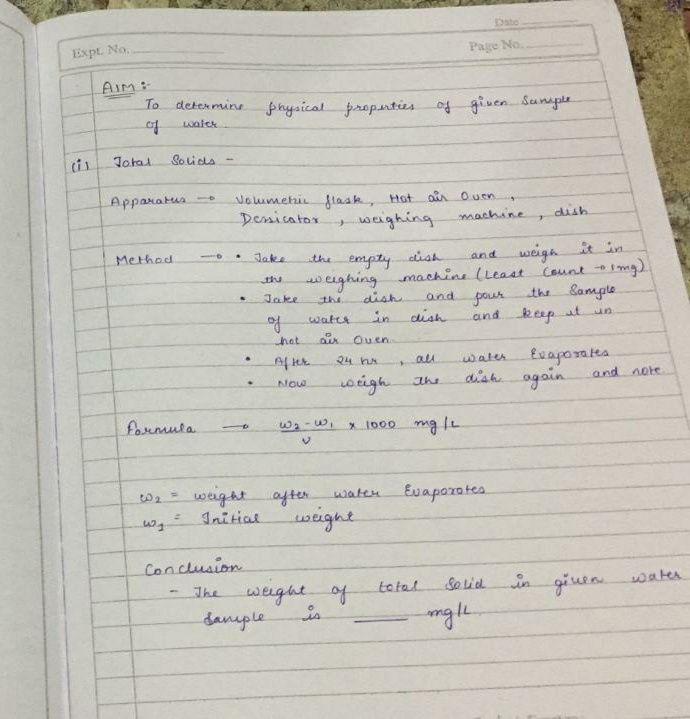 Date
Expt. No.
Page No.
AIM :-
To determine physical properties of given Sample
of water
(i) Total Solids -
Apparatus → Volumetric flask, Hot air Oven,
Dessicator, weighing machine, dish
Method → • Take the empty dish and weigh it in
the weighing machine (Least Count → 1mg)
• Take the dish and pour the Sample
of water in dish and keep it in
hot air Oven
• After 24 hr, all water Evaporates
• Now weigh the dish again and note
Formula → w₂ - w₁ / v x 1000 mg/L
w₂ = weight after water Evaporates
w₁ = Initial weight
Conclusion
- The weight of total Solid in given water
Sample is ____ mg/L